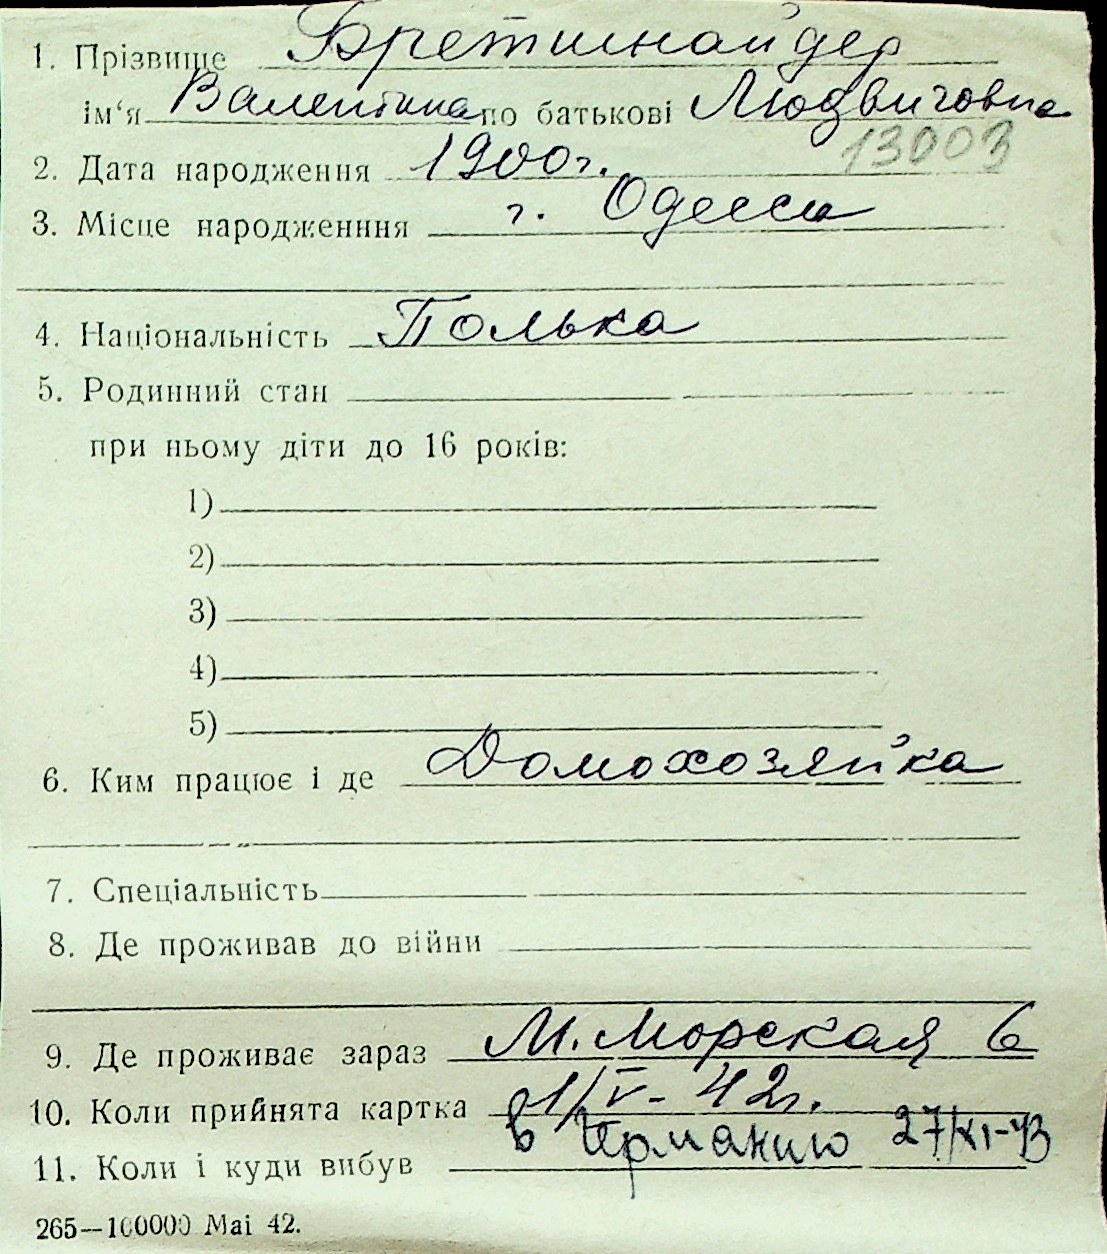 1. Прізвище Бретшнайдер
ім‘я Валентина по батькові Людвиговна
13003
2. Дата народження 1900г.
3. Місце народженння г. Одесса
4. Національність Полька
5. Родинний стан
при ньому діти до 16 років:
1)
2)
3)
4)
5)
6. Ким працює і де Домохозяйка
7. Спеціальність
8. Де проживав до війни
9. Де проживає зараз М. Морская 6
10. Коли прийнята картка 1/V - 42г.
11. Коли і куди вибув в Германию 27/XI-43
265—100000 Маі 42.